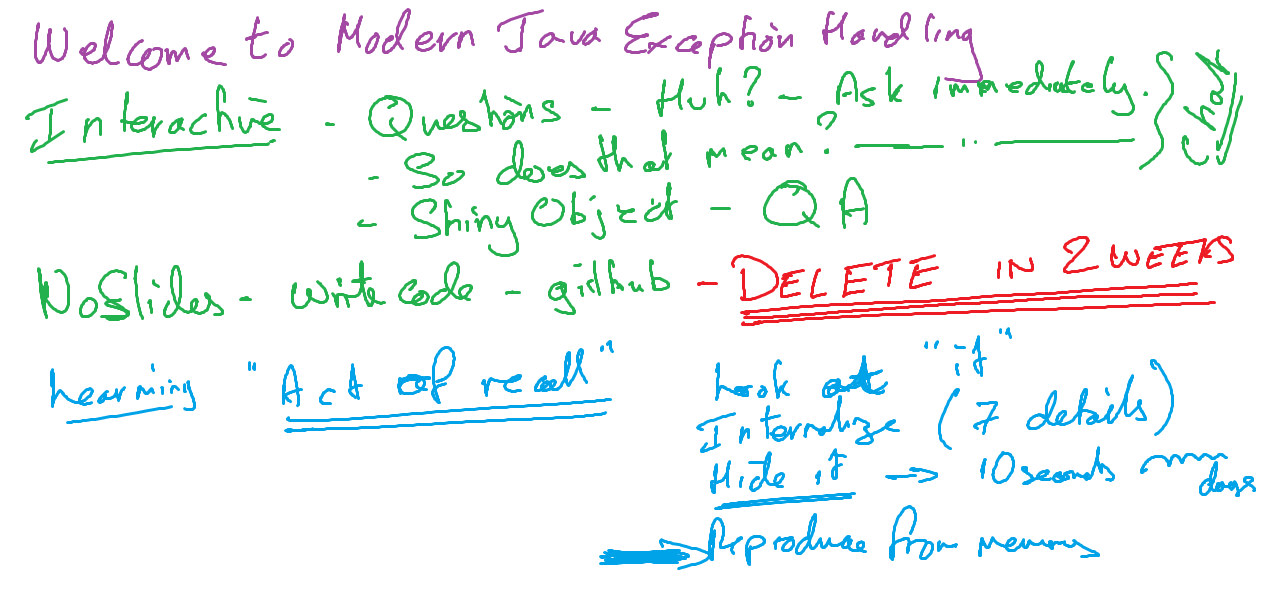 Welcome to Modern Java Exception Handling
Interactive - Questions - Huh? - Ask immediately. } Chat
- So does that mean? —— .. ——
- Shiny Object - QA
No Slides - write code - github - DELETE IN 2 WEEKS
Learning "Act of recall"
Look at "it"
Internalize (7 details)
Hide it → 10 seconds days
Reproduce from memory